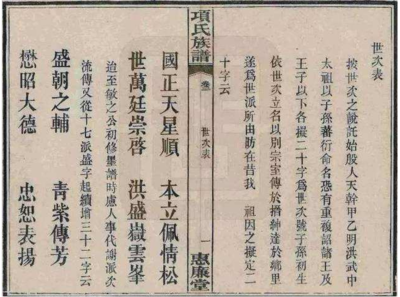 世次表
按世次之說託始殷人天幹甲乙明洪武中
太祖以子孫蕃衍命名恐有重複詔諸王及
王子以下各撮二十字爲世次號子孫初生
依世次立名以別宗室傳於搢紳達於鄉里
遂爲世派所由肪在昔我 祖因之擬定二
十字云
項氏族譜
卷
世次表
一
惠廉堂
國正天星順 本立佩情松
世萬廷崇啓 洪盛嶽雲峯
迨至敏之公初修墨譜時慮人事代謝派次
流傳又從十七派盛字起續增三十二字云
盛朝之輔 青紫傳芳
懋昭大德 忠恕表揚